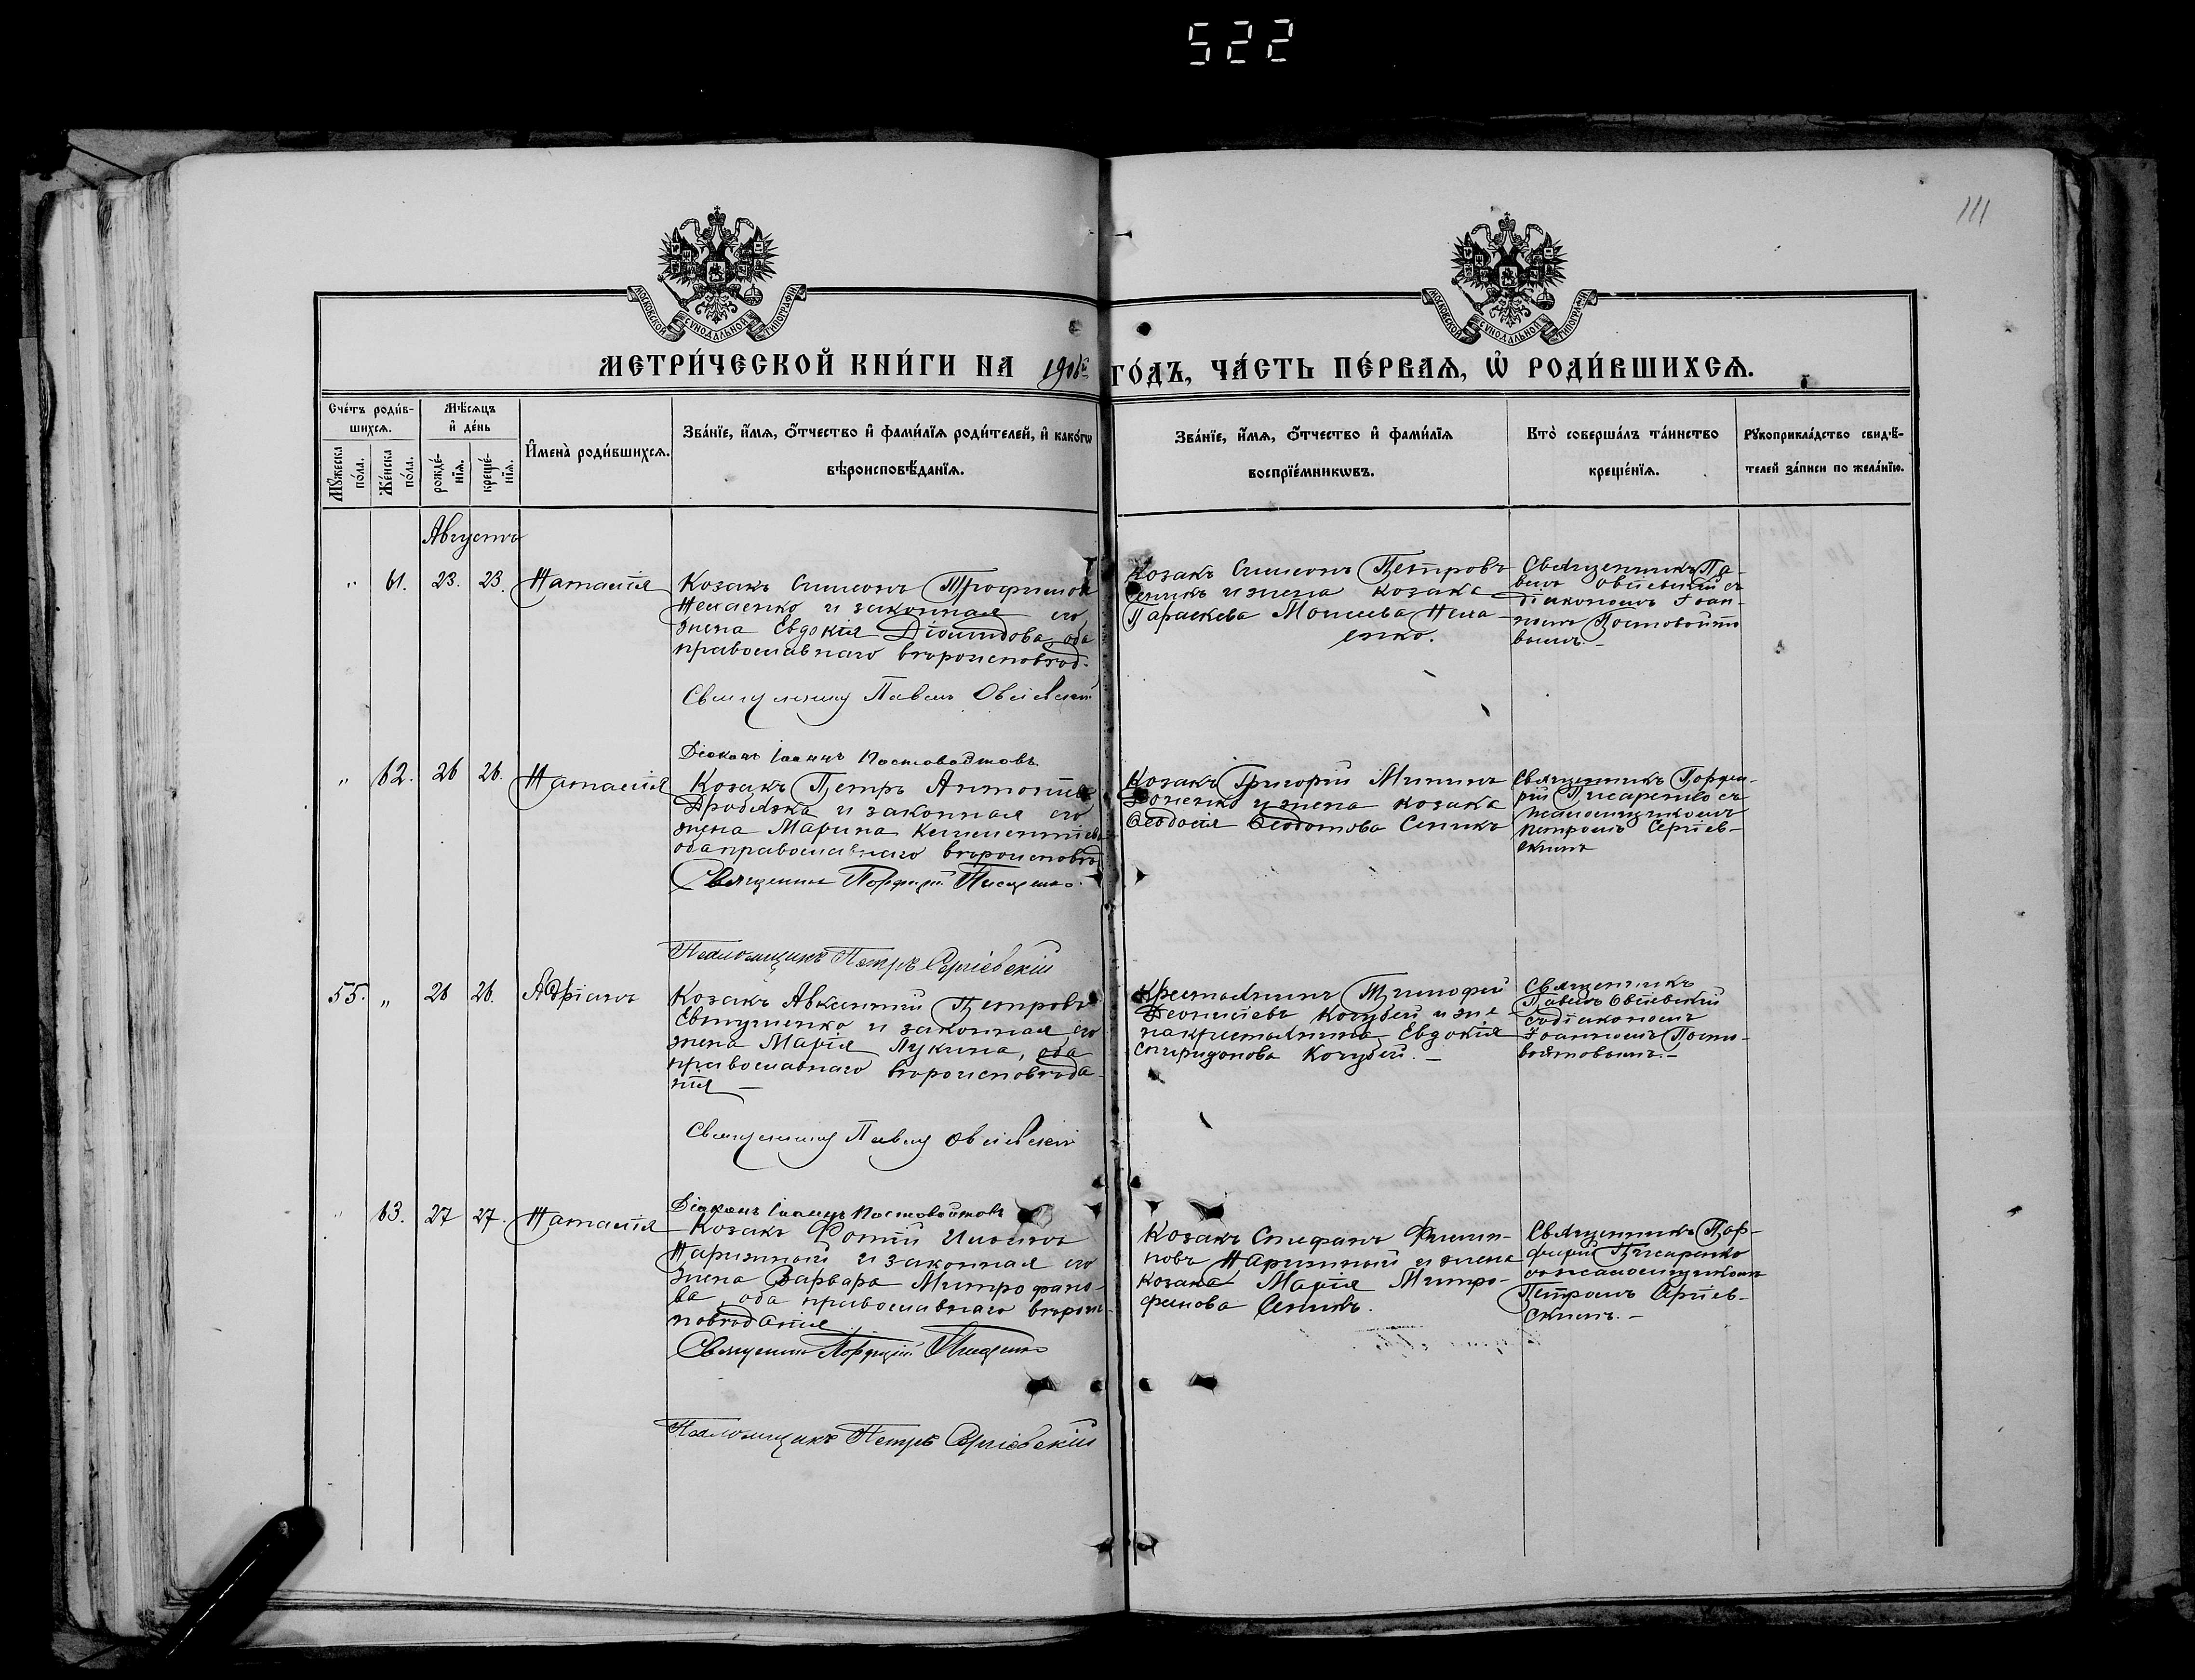 522
111
МОСКОВСКОЙ СѴНОДАЛЬНОЙ ТИПОГРАФІИ
МОСКОВСКОЙ СѴНОДАЛЬНОЙ ТИПОГРАФІИ
МЕТРИ́ЧЕСКОЙ КНИ́ГИ НА ГО́ДЪ, ЧА́СТЬ ПЕ́РВАѦ, Ѡ҆ РОДИ́ВШИХСѦ.
Сче́тъ роди́в-
шихсѧ.
Мꙋ́жеска по́ла.
Же́нска по́ла.
Мѣ́сѧцъ
и҆ де́нь
рожде́-
нїѧ.
креще́-
нїѧ.
И҆мена̀ роди́вшихсѧ.
Зва́нїе, и҆́мѧ, ѻ҆́тчество и҆ фами́лїѧ роди́телей, и҆ како́гѡ
вѣроисповѣ́данїѧ.
Зва́нїе, и҆́мѧ, ѻ҆́тчество и҆ фами́лїѧ
воспрїе́мникѡвъ.
Кто̀ соверша́лъ та́инство
креще́нїѧ.
Рꙋкоприкла́дство свидѣ́-
телей за́писи по жела́нїю.
Августа
" 61. 23. 23. Наталія
Козакъ Симеонъ Трофимовъ
и законная его
жена Евдокія Діомидова, оба
православнаго вѣроисповѣд.
Священникъ Павелъ Овсіевскій
Діаконъ Іоаннъ Постовойтовъ
Козакъ Симеонъ Петровъ
Сеникъ и жена козака
Параскева Моисеева
енко.
Священникъ Па-
велъ Овсіевскій съ
діакономъ Іоан-
номъ Постовойто
вымъ. –
" 62. 26 26. Наталія
Козакъ Петръ Антоніевъ
Дробязка и законная его
жена Марина Климентіева
оба православнаго вѣроисповѣд.
Священникъ Порфирій Писаренко.
Псаломщикъ Петръ Сергіевскій
Козакъ Григорій Мининъ
и жена козака
Ѳеодосія Ѳеодотова Сеникъ
Священникъ Порфи-
рій Писаренко съ
псаломщикомъ
Петромъ Сергіев-
скимъ
55. " 26 26. Адріанъ
Козакъ Авксентій Петровъ
Евтушенко и законная его
жена Марія Лукина, оба
православнаго вѣроисповѣда-
нія –
Священникъ Павелъ Овсіевскій
Діаконъ Іоаннъ Постовойтовъ
Крестьянинъ Тимофей
Леонтіевъ Кочубей и же-
на крестьянина Евдокія
Спиридонова Кочубей. –
Священникъ
Павелъ Овсіевскій
съ діакономъ
Іоанномъ Посто-
войтовымъ. –
" 63. 27 27. Наталія
Козакъ Фотій Ильинъ
Нарижный и законная его
жена Варвара Митрофано-
ва, оба православнаго вѣроис-
повѣданія
Священникъ Порфирій Писаренко
Псаломщикъ Петръ Сергіевскій
Козакъ Стефанъ Филип-
повъ Нарижный и жена
козака Марія Митро-
фанова Сеникъ.
Священникъ Пор-
фирій Писаренко
съ псаломщикомъ
Петромъ Сергіев-
скимъ. –